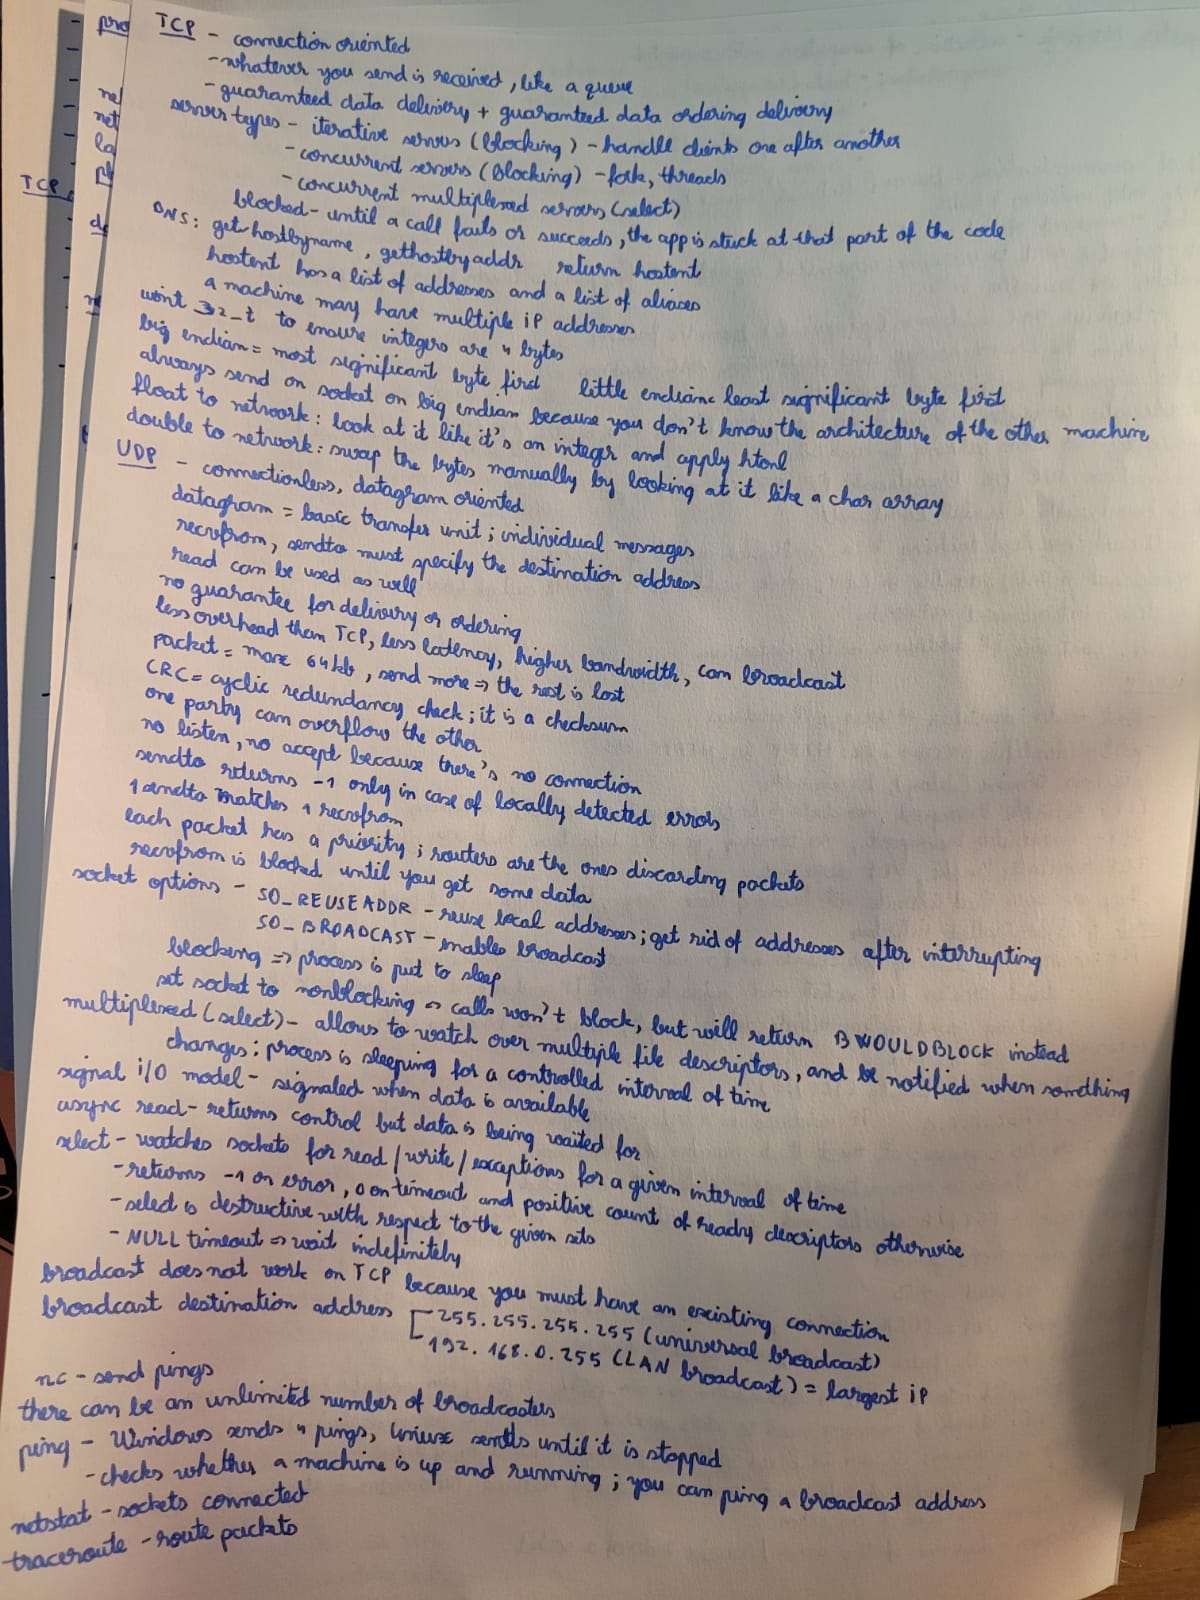 TCP - connection oriented
- whatever you send is received, like a queue
- guaranteed data delivery + guaranteed data ordering delivery
server types - iterative servers (blocking) - handle clients one after another
- concurrent servers (blocking) - fork, threads
- concurrent multiplexed servers (select)
blocked - until a call fails or succeeds, the app is stuck at that part of the code
DNS: gethostbyname, gethostbyaddr return hostent
hostent has a list of addresses and a list of aliases
a machine may have multiple ip addresses
uint 32_t to ensure integers are 4 bytes
big endian = most significant byte first little endian = least significant byte first
always send on socket on big endian because you don't know the architecture of the other machine
float to network: look at it like it's an integer and apply htonl
double to network: swap the bytes manually by looking at it like a char array
UDP - connectionless, datagram oriented
datagram = basic transfer unit; individual messages
recvfrom, sendto must specify the destination address
read can be used as well
no guarantee for delivery or ordering
less overhead than TCP, less latency, higher bandwidth, can broadcast
packet = max 64kb, send more => the rest is lost
CRC = cyclic redundancy check; it is a checksum
one party can overflow the other
no listen, no accept because there's no connection
sendto returns -1 only in case of locally detected errors
1 sendto matches 1 recvfrom
each packet has a priority; routers are the ones discarding packets
recvfrom is blocked until you get some data
socket options - SO_REUSEADDR - reuse local addresses; get rid of addresses after interrupting
SO_BROADCAST - enables broadcast
blocking => process is put to sleep
set socket to nonblocking => calls won't block, but will return BWOULDBLOCK instead
multiplexed (select) - allows to watch over multiple file descriptors, and be notified when something
changes; process is sleeping for a controlled interval of time
signal i/o model - signaled when data is available
async read - returns control but data is being waited for
select - watches sockets for read / write / exceptions for a given interval of time
- returns -1 on error, 0 on timeout and positive count of ready descriptors otherwise
- select is destructive with respect to the given sets
- NULL timeout => wait indefinitely
broadcast does not work on TCP because you must have an existing connection
broadcast destination address 255.255.255.255 (universal broadcast)
192.168.0.255 (LAN broadcast) = largest ip
nc - send pings
there can be an unlimited number of broadcasters
ping - Windows sends 4 pings, Linux sends until it is stopped
- checks whether a machine is up and running; you can ping a broadcast address
netstat - sockets connected
traceroute - route packets
TCP